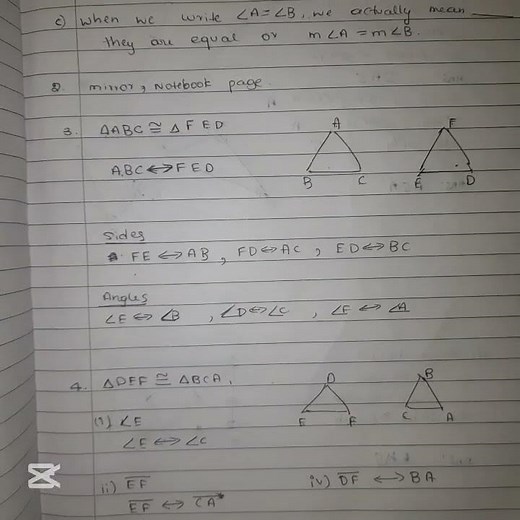 c) When we write ∠A = ∠B, we actually mean ____
they are equal or m∠A = m∠B.
2. mirror, Notebook page
3. △ABC ≅ △FED
A
F
ABC ↔ FED
B C E D
Sides
FE ↔ AB, FD ↔ AC, ED ↔ BC
Angles
∠E ↔ ∠B, ∠D ↔ ∠C, ∠F ↔ ∠A
4. △DEF ≅ △BCA.
D
B
(i) ∠E
E F C A
∠E ↔ ∠C
ii) E̅F̅ iv) D̅F̅ ↔ BA
E̅F̅ ↔ C̅A̅